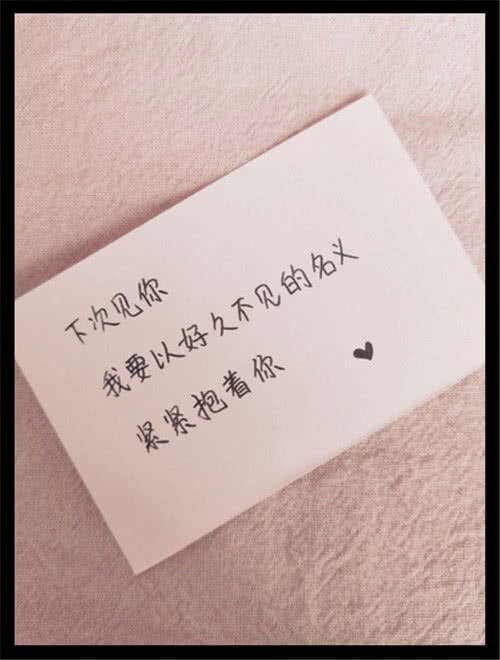 下次见你
我要以好久不见的名义
紧紧抱着你